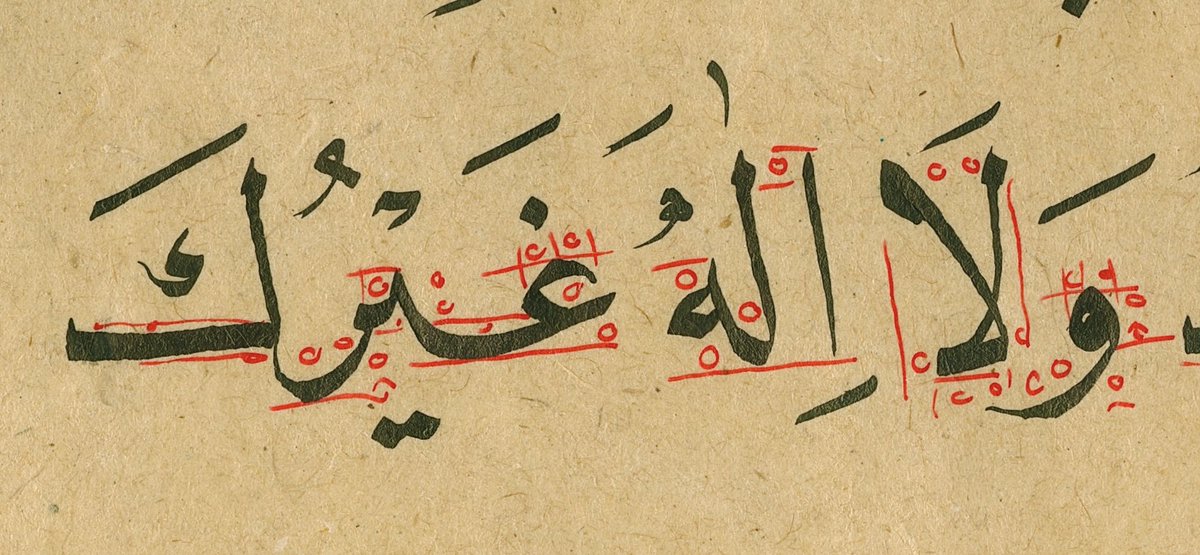 وَلَا اِلٰهَ غَيْرُكَ